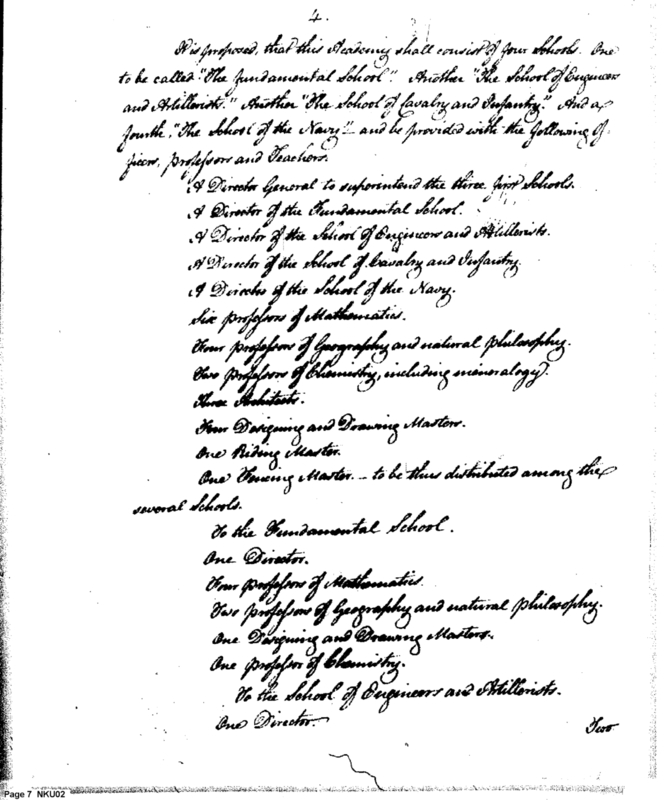 4.
It is proposed, that this Academy shall consist of four Schools. One
to be called "The fundamental School". Another "The School of Engineers
and Artillerists." Another "The School of Cavalry and Infantry." And a
fourth, "The School of the Navy" – and be provided with the following Of-
ficers, professors and Teachers.
A Director General to superintend the three first Schools.
A Director of the Fundamental School.
A Director of the School of Engineers and Artillerists.
A Director of the School of Cavalry and Infantry.
A Director of the School of the Navy.
Six professors of Mathematics.
Four professors of Geography and natural philosophy.
Two professors of Chemistry, including mineralogy.
Three Architects.
Four Designing and Drawing Masters.
One Riding Master.
One Fencing Master. – to be thus distributed among the
several Schools.
To the Fundamental School.
One Director.
Four professors of Mathematics
Two professors of Geography and natural philosophy.
One Designing and Drawing Masters.
One professor of Chemistry.
To the School of Engineers and Artillerists.
One Director.
Two
Page 7 NKU02